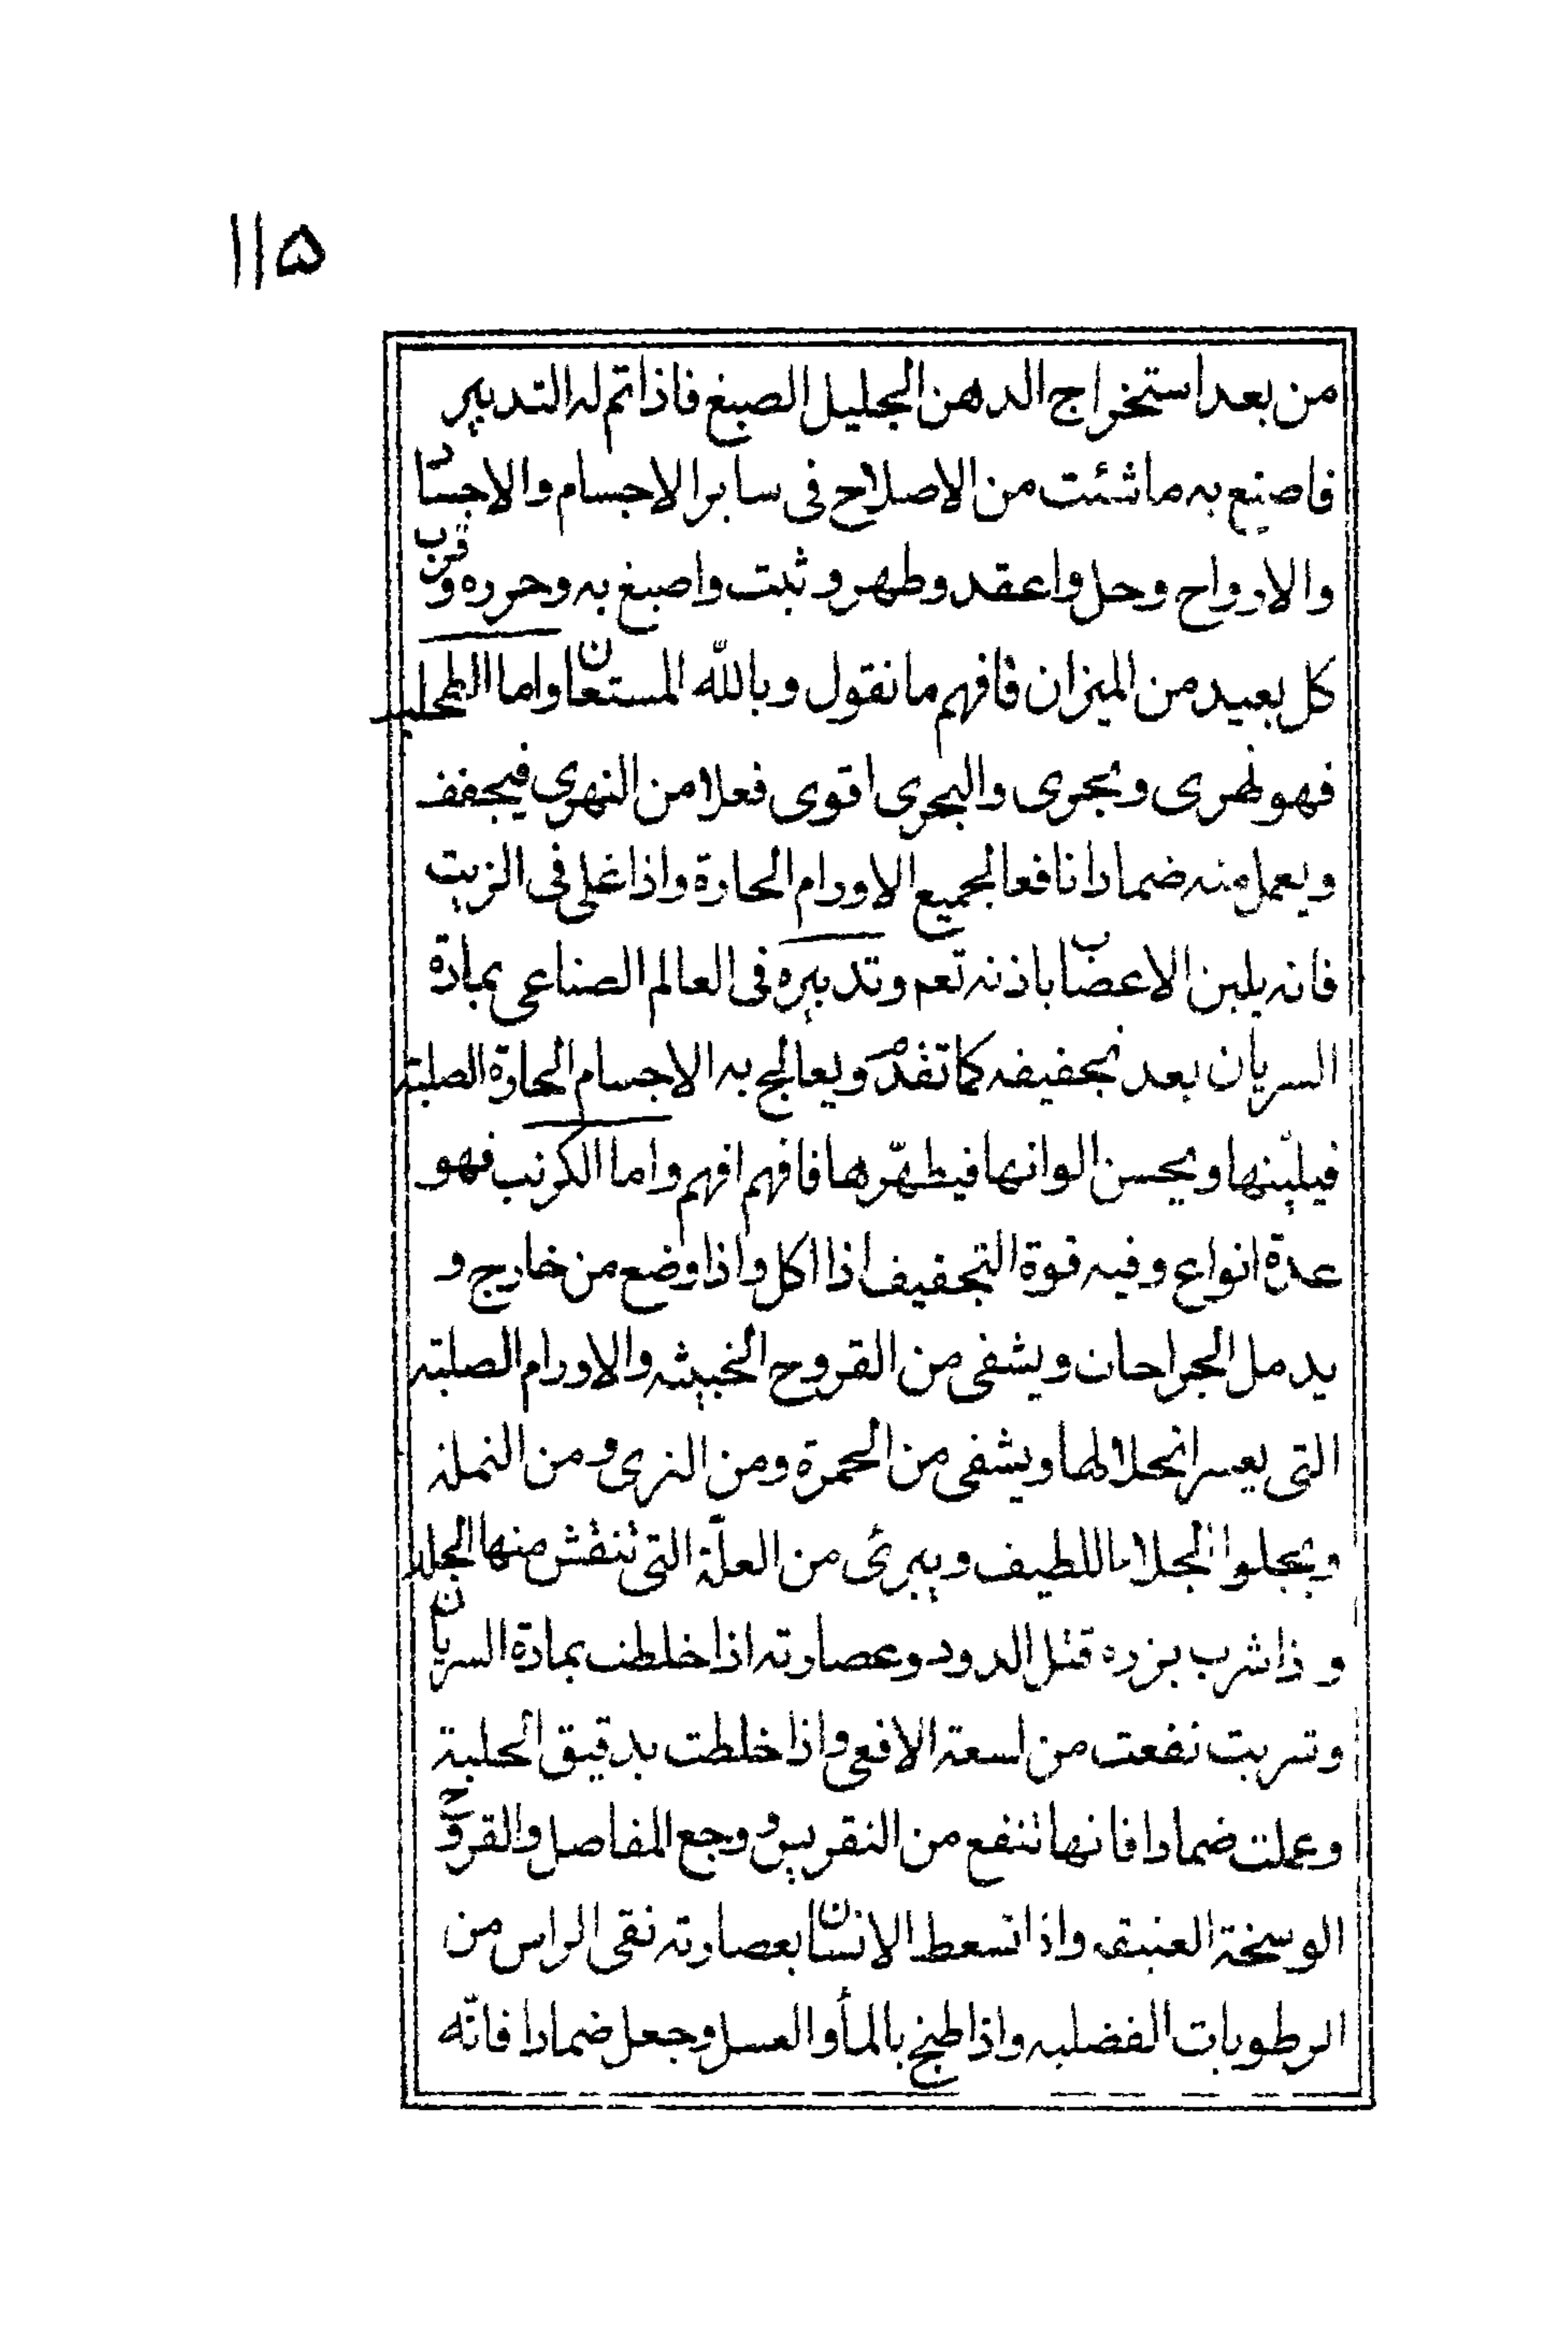 ١١۵
من بعد استخراج الدهن الجليل الصبغ فاذا تم له التدبير
فاصنع به ما شئت من الاصلاح فى ساير الاجسام والاجساد
والارواح وحل واعقد وطهر وثبت واصبغ به وحرره وقرب
كل بعيد من الميزان فافهم ما نقول وبالله المستعان واما الطحلب
فهو نهرى وبحرى والبحرى اقوى فعلا من النهرى فيجفف
ويعمل منه ضمادا نافعا لجميع الاورام الحارة واذا غلى فى الزيت
فانه يلين الاعصاب باذنه تعم وتدبيره فى العالم الصناعى بمادة
السريان بعد تجفيفه كما تقدم ويعالج به الاجسام الحارة الصلبة
فيلينها ويحسن الوانها فيطهّرها فافهم افهم واما الكرنب فهو
عدة انواع وفيه قوة التجفيف اذا اكل واذا وضع من خارج و
يدمل الجراحات ويشفى من القروح الخبيثه والاورام الصلبة
التى يعسر انحلالها ويشفى من الحمرة ومن النرى ومن النملة
ويجلوا الجلاء اللطيف ويبرئ من العلّة التى تنقش منها الجلد
و ذا شرب بزره قتل الدود وعصارته اذا خلطت بمادة السريان
وشربت نفعت من لسعة الافعى واذا خلطت بدقيق الحلبة
وعملت ضمادا فانها تنفع من النقريس ووجع المفاصل والقروح
الوسخة العتيق واذا تسعط الانسان بعصارته نقى الراس من
الرطوبات الفضليه واذا طبخ بالمأ والعسل وجعل ضمادا فانّه